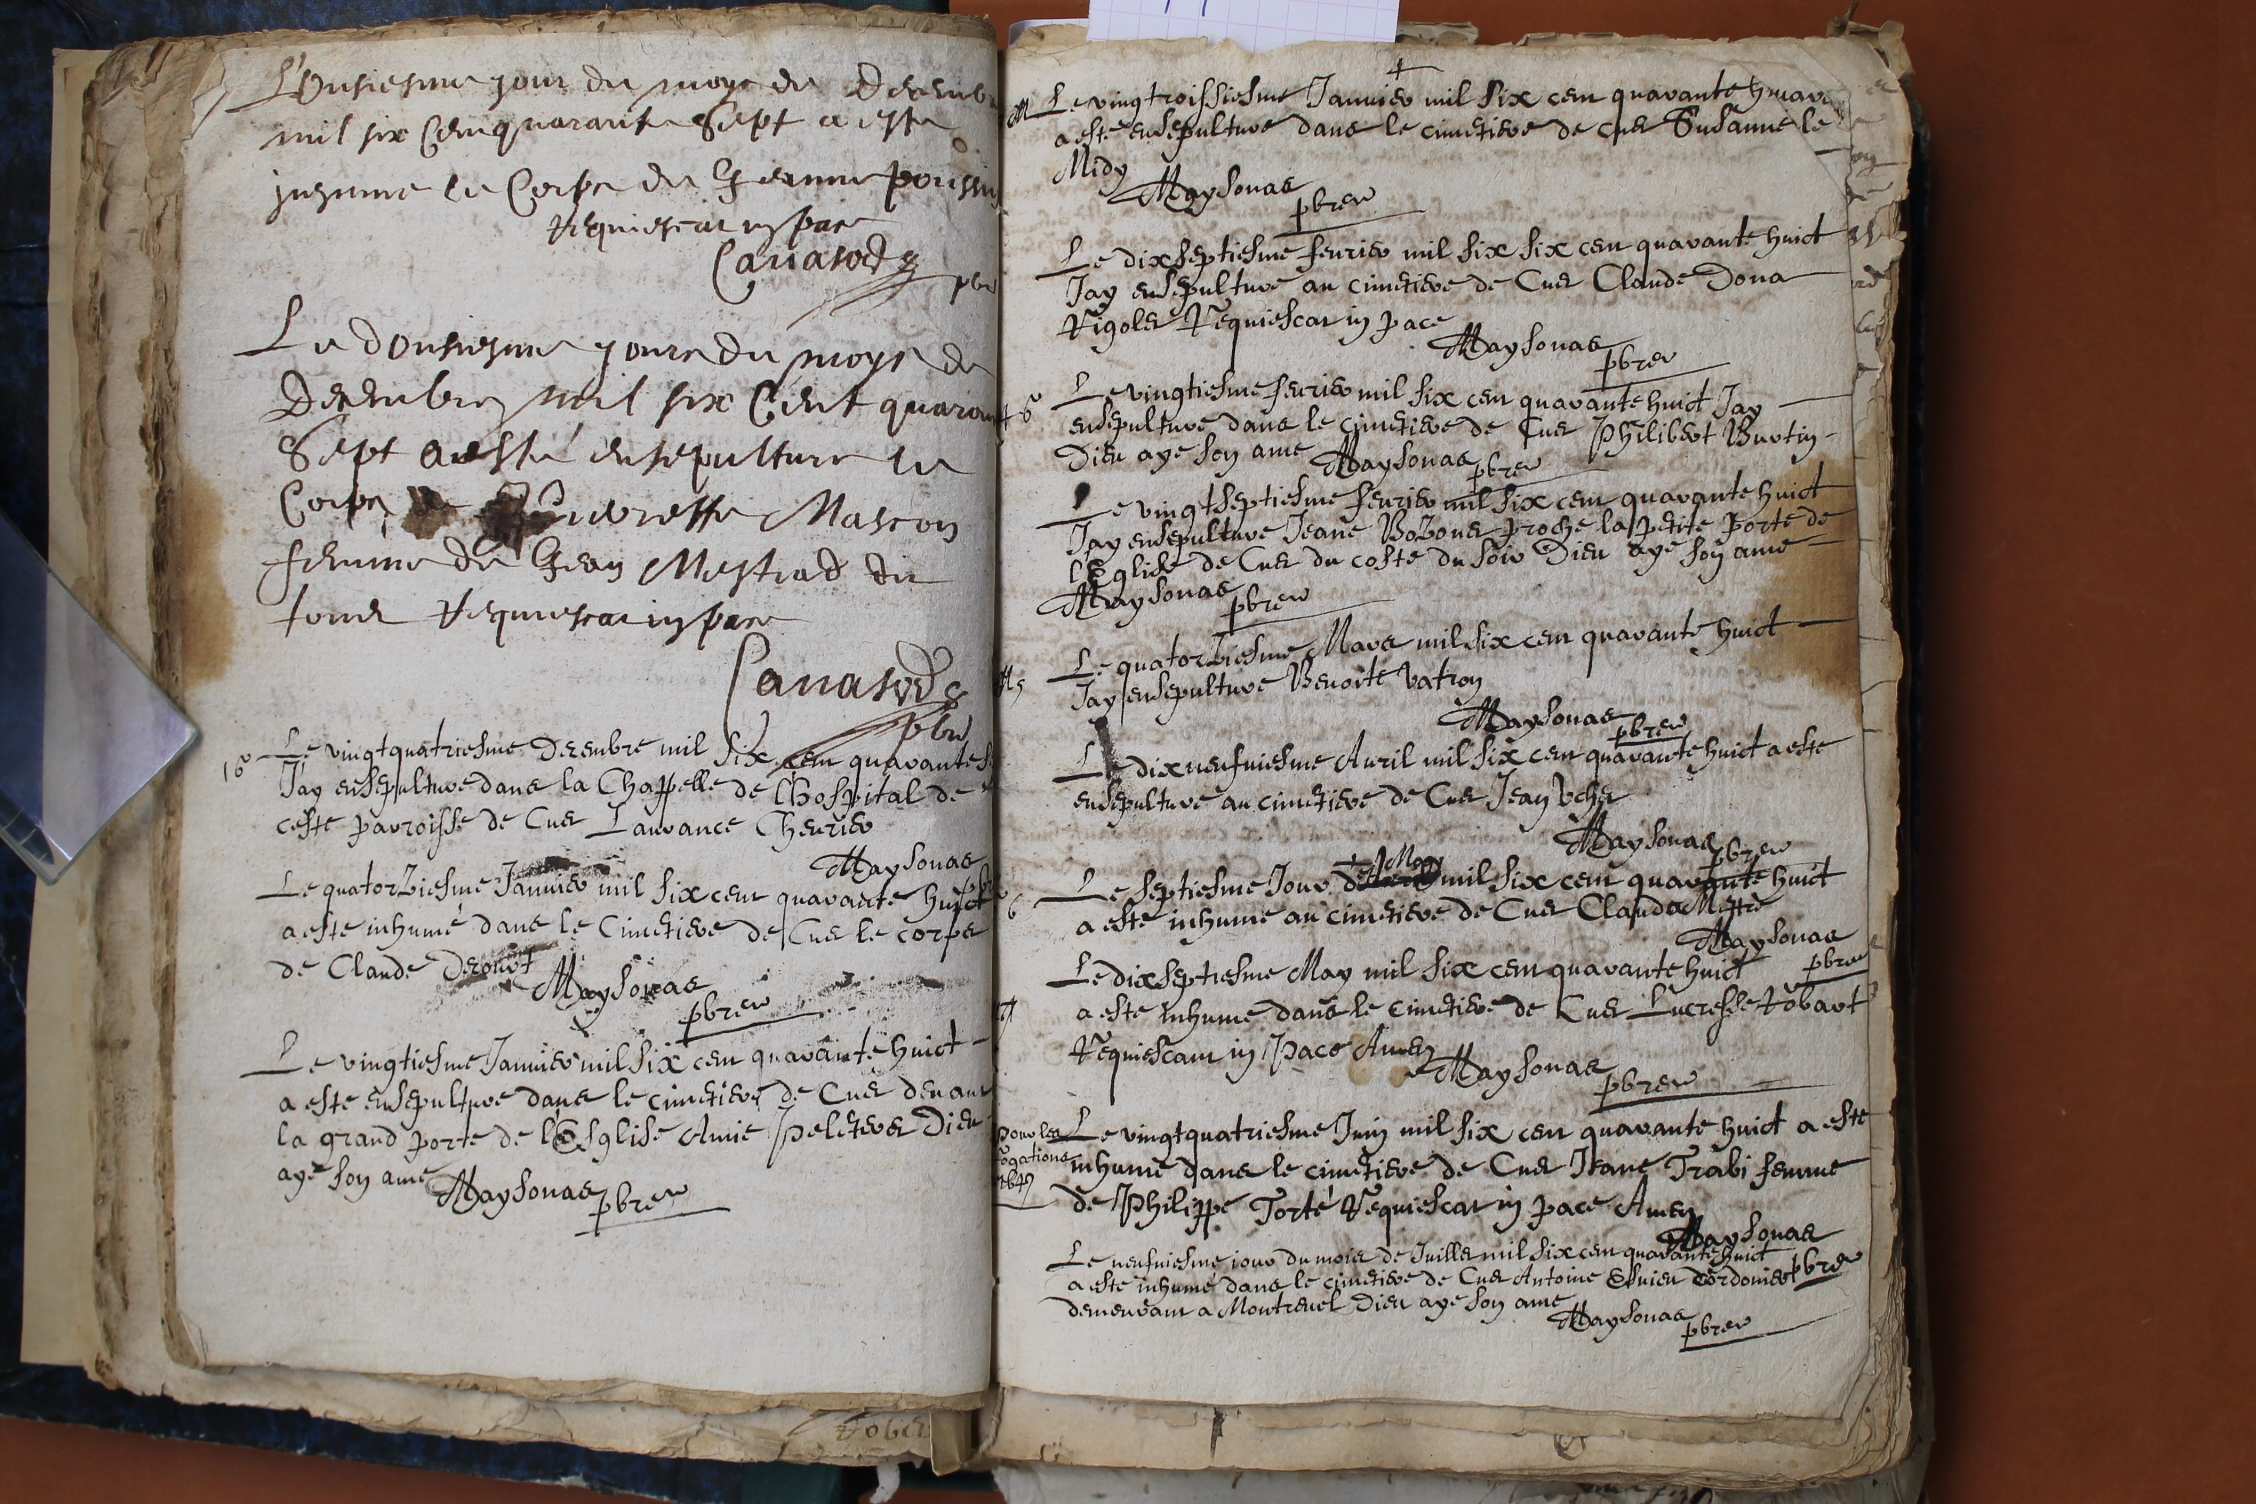 L'Onsiesme jour du moys de Decemb
mil six Cenquarante Sept a este
inhume le Corps de Jeanne poussin
Requiescat in pace
Canasods
pbr
Le Dousiesme jours du moys de
Decembre mil six Cent quarant
Sept a esté ensepulture le
Corps de Mascon
femme de Jean Mestrad dit
Requiescat in pace
Canasods
pbr
Le vingtquatriesme Decembre mil six cent quarante
J'ay ensepulture dans la Chappelle de l'hospital de
ceste parroisse de Cuer Laurance Cheurier
Maysonas
Le quatorziesme Januier mil six cent quarante huict
a este inhumé dans le Cimetiere de Cuer le corps
de Claude Derouet
Maysonas
pbrer
Le vingtiesme Januier mil six cent quarante huict
a este ensepulture dans le cimetiere de Cuer deuant
la grand porte de l'Esglise Amie Peleterer Dieu
aye son ame Maysonas
pbrer
Le vingtroissiesme Januier mil six cent quarante huict
a este ensepulture dans le cimetiere de Cuer Susanne le
Midy
Maysonas
pbrer
Le dixseptiesme feurier mil six six cent quarante huict
Jay ensepulture au cimetiere de Cuer Claude Dona
Rigoler Requiescat in pace
Maysonas
pbrer
Le vingtiesme feurier mil six cent quarante huict Jay
ensepulture dans le cimetiere de Cuer Philibert Burtin
Dieu aye son ame Maysonas pbrer
Le vingtseptiesme feurier mil six cent quarante huict
Jay ensepulture Jeane Bozoner proche la petite porte de
l'Eglise de Cuer du coste du soir Dieu aye son ame
Maysonas
pbrer
Le quatorziesme Mars mil six cent quarante huict
Jay ensepulture Benoite Vatron
Maysonas
pbrer
Le dixneufuiesme Auril mil six cent quarante huict a este
ensepulture au cimetiere de Cuer Jean Vcher
Maysonas pbrer
May
Le septiesme Jour de mil six cent quarante huict
a este inhume au cimetiere de Cuer Clauda Mettre
Maysonas
pbrer
Le dixseptiesme May mil six cent quarante huict
a este inhume dans le cimetiere de Cuer Lucresse Robart
Requiescant in Pace Amen
Maysonas
pbrer
pour les
rogations
1649
Le vingtquatriesme Juin mil six cent quarante huict a este
inhume dans le cimetiere de Cuer Jeane Trabi femme
de Philippe Torte Requiescat in pace Amen
Maysonas
pbrer
Le neufuiesme iour du mois de Juillet mil six cent quarante huict
a este inhumé dans le cimetiere de Cuer Antoine cordonier
demeurant a Montreuel Dieu aye son ame
Maysonas
pbrer